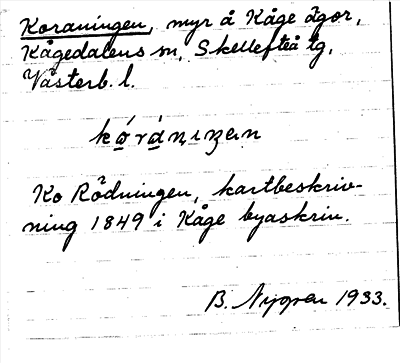 Koraningen, myr å Kåge ägor,
Kågedalens sn, Skellefteå tg,
Västerb. l.
Ko Rödningen, kartbeskriv-
ning 1849 i Kåge byaskrin.
B. Nygren 1933.